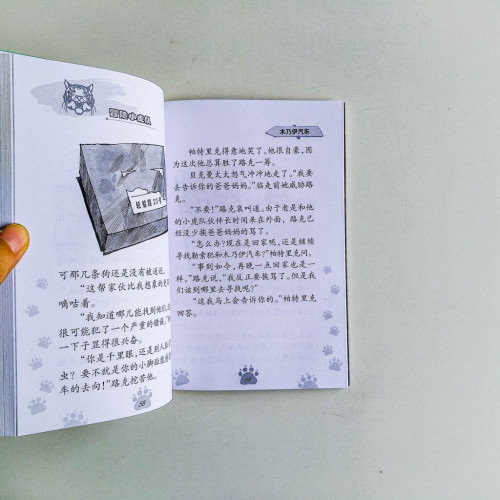 冒险小虎队
可那几条狗还是没有被送还。
“这帮家伙比我想象的
嘀咕着。
“我知道哪儿能找到他们
很可能犯了一个严重的错误，”
一下子显得很兴奋。
“你是千里眼，还是别人
出？要不就是你的小脚趾
车的去向！”路克挖苦他。
58
木乃伊汽车
帕特里克得意地笑了。他很自豪，因
为这次他总算胜了路克一筹。
贝克曼太太怒气冲冲地走了。“我要
去告诉你的爸爸妈妈。”临走前她威胁路
克。
“不要！”路克哀叫道。由于老是和他
的小虎队伙伴长时间呆在外面，路克已
经没少挨爸爸妈妈的骂了。
“怎么办？现在是回家呢，还是继续
寻找勒索犯和木乃伊汽车？”帕特里克问。
“事到如今，再晚一点回家也是一
样。”路克说，“我反正要挨骂了。但是我
们该到哪里去寻找呢？”
“这我马上会告诉你的。”帕特里克
回答。
59